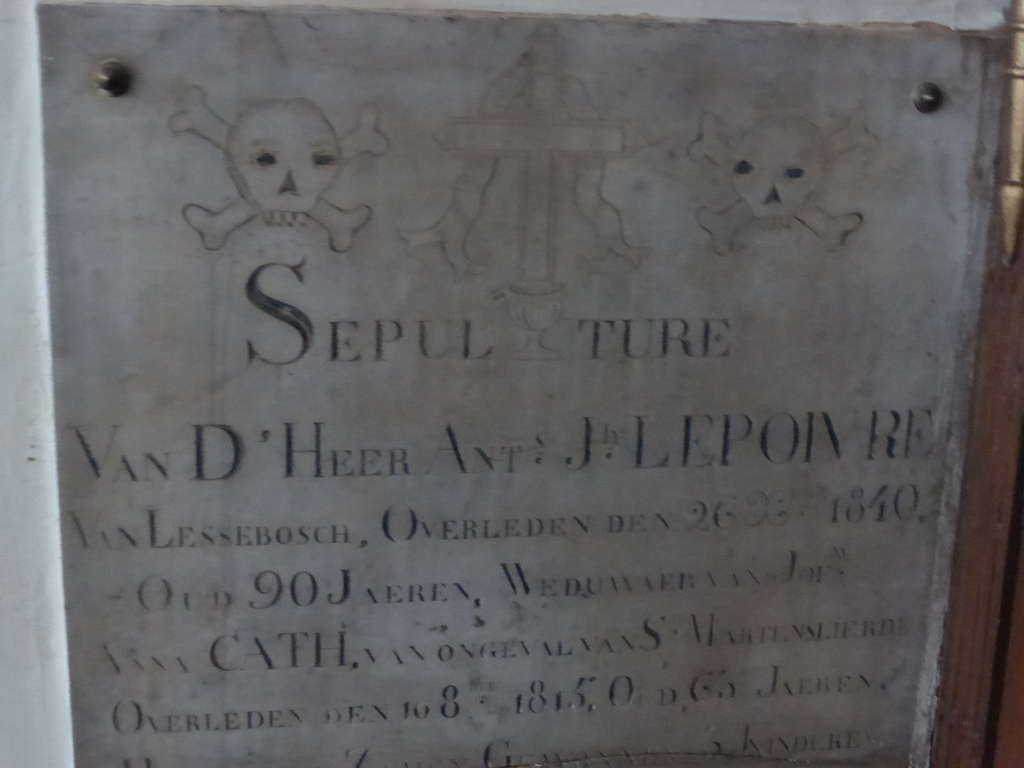 SEPULTURE
VAN D'HEER ANT.S J.H LEPOIVRE
VAN LESSEBOSCH, OVERLEDEN DEN 26 1840.
OUD 90 JAEREN, WEDUWAER VAN JOF.W
CATH. VAN ONGEVAL VAN S.T MARTENSLIERDE
OVERLEDEN DEN 10 8 1815, OUD, 65 JAEREN.
KINDEREN